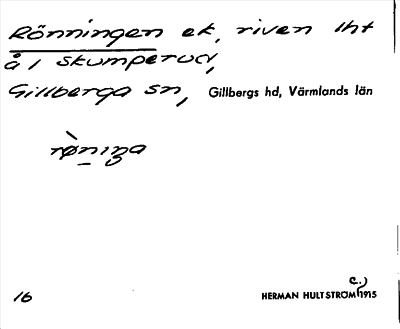 Rönningen ek, riven lht
å 1 Skumperud,
Gillberga sn, Gillbergs hd, Värmlands län
røniŋa
c.)
16 HERMAN HULTSTRÖM 1915